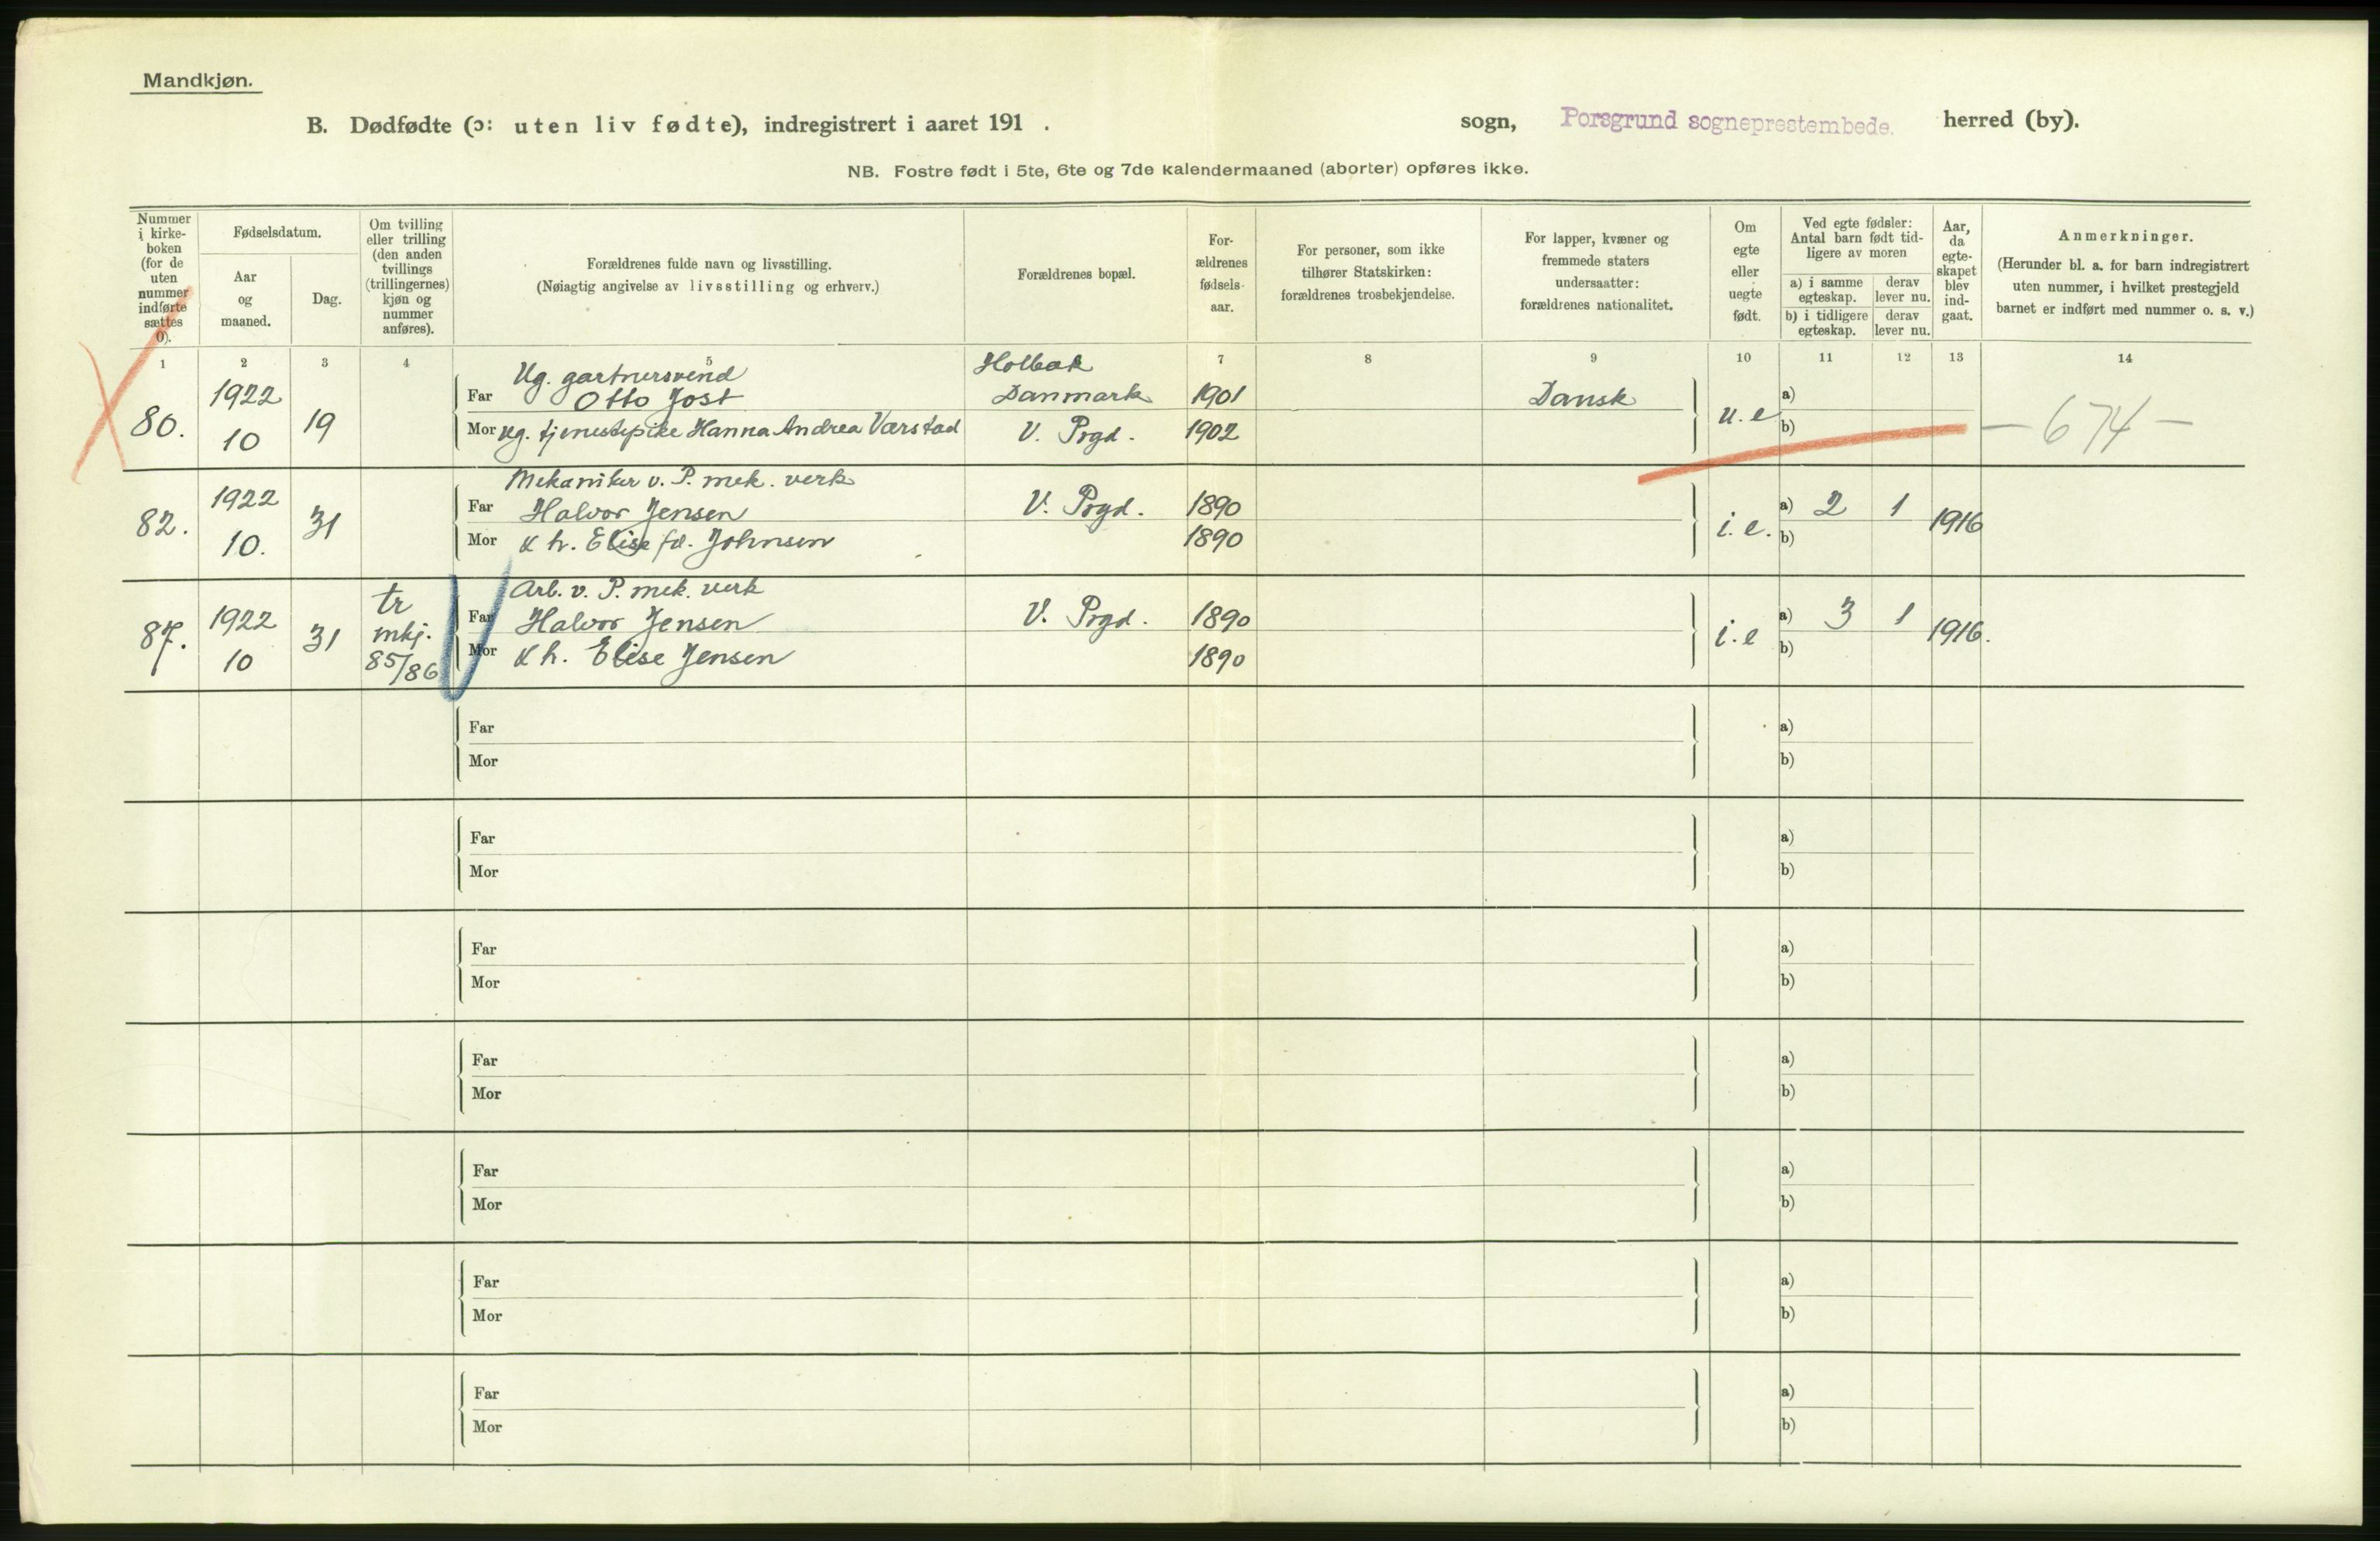 Mandkjøn.
B. Dødfødte (ɔ: uten liv fødte), indregistrert i aaret 191 . sogn, Porsgrund sogneprestembede. herred (by).
NB. Fostre født i 5te, 6te og 7de kalendermaaned (aborter) opføres ikke.
Nummer i kirke- boken (for de uten nummer indførte sættes 0).
Fødselsdatum.
Aar og maaned.
Dag.
Om tvilling eller trilling (den anden tvillings (trillingernes) kjøn og nummer anføres).
Forældrenes fulde navn og livsstilling.
(Nøiagtig angivelse av livsstilling og erhverv.)
Forældrenes bopæl.
For- ældrenes fødsels- aar.
For personer, som ikke tilhører Statskirken: forældrenes trosbekjendelse.
For lapper, kvæner og fremmede staters undersaatter: forældrenes nationalitet.
Om egte eller uegte født.
Ved egte fødsler: Antal barn født tid- ligere av moren
a) i samme egteskap. derav lever nu.
b) i tidligere egteskap. derav lever nu.
Aar, da egte- skapet blev ind- gaat.
Anmerkninger.
(Herunder bl. a. for barn indregistrert uten nummer, i hvilket prestegjeld barnet er indført med nummer o. s. v.)
1 2 3 4 5 7 8 9 10 11 12 13 14
Ug. gartnersvend Holbæk
80. 1922 10 19 Far Otto Jost Danmark 1901 Dansk u.e a) b) - 674 -
Mor ug. tjenestepike Hanna Andrea Værstad V. Prgd. 1902
Mekaniker v. P. mek. verk
82. 1922 10. 31 Far Halvor Jensen V. Prgd. 1890 i.e. a) 2 1 1916
Mor k h. Elise fd. Johnsen 1890 b)
Arb. v. P. mek. verk
87. 1922 10 31 tr mkj. 85/86 Far Halvor Jensen V. Prgd. 1890 i.e a) 3 1 1916.
Mor k h. Elise Jensen 1890 b)
Far a)
Mor b)
Far a)
Mor b)
Far a)
Mor b)
Far a)
Mor b)
Far a)
Mor b)
Far a)
Mor b)
Far a)
Mor b)